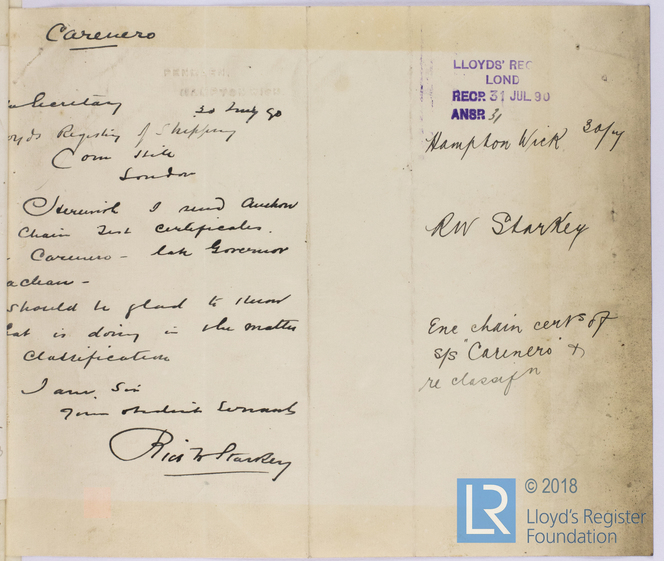 Carenero
Secretary
30 July 90
Lloyds Registry of Shipping
Corn Hill
London
Herewith I send Anchor
Chain Test Certificates.
- Carenero - late Governor
aclean -
should be glad to know
hat is doing in the matter
Classification
I am Sir
Your obedient Servant
Rich W Starkey
LLOYDS' REG
LOND
RECD. 31 JUL 90
ANSR 31
Hampton Wick 30/7
RW Starkey
Enc chain certs of
S/S "Carenero" &
re classifn
LR
© 2018
Lloyd's Register
Foundation